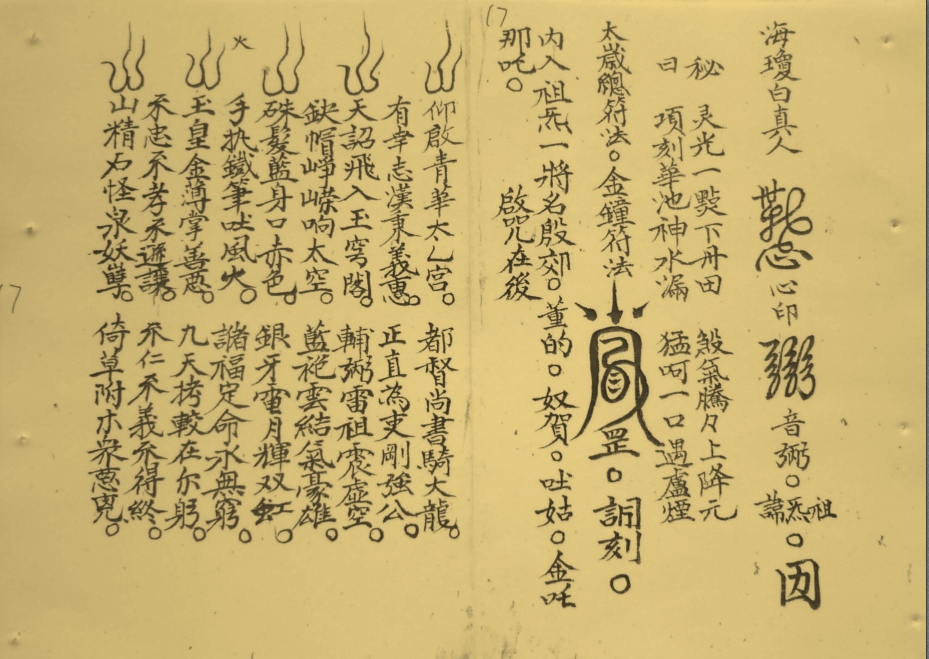 17
海瓊白真人
心印
音弼。
祖炁諱。囙
秘 灵光一㸃下丹田 殺氣騰々上降元
曰 項刻華池神水漏 猛呵一口遇盧煙
太歲總符法。金鐘符法
罡。詞刻。
内入祖炁一將名殷郊。董的。奴賀。吐姑。金吒
那吒。 啟咒在後
仰啟青華太乙宫。 都督尚書騎大龍。
有幸志漢秉義惠。 正直為吏剛強公。
天詔飛入玉穹閣。 輔弼雷祖震虚空。
鈌帽崢嶸响太空。 藍袍雲結氣豪雄。
硃髮藍身口赤色。 銀牙蛮月輝双虹。
火
手执鐵筆吐風火。 諸福定命永無窮。
玉皇金薄掌善悪。 九天拷較在尔躬。
不忠不孝不遜讓。 不仁不義不得終。
山精石怪泉妖孽。 倚草附木衆惡兇。
17